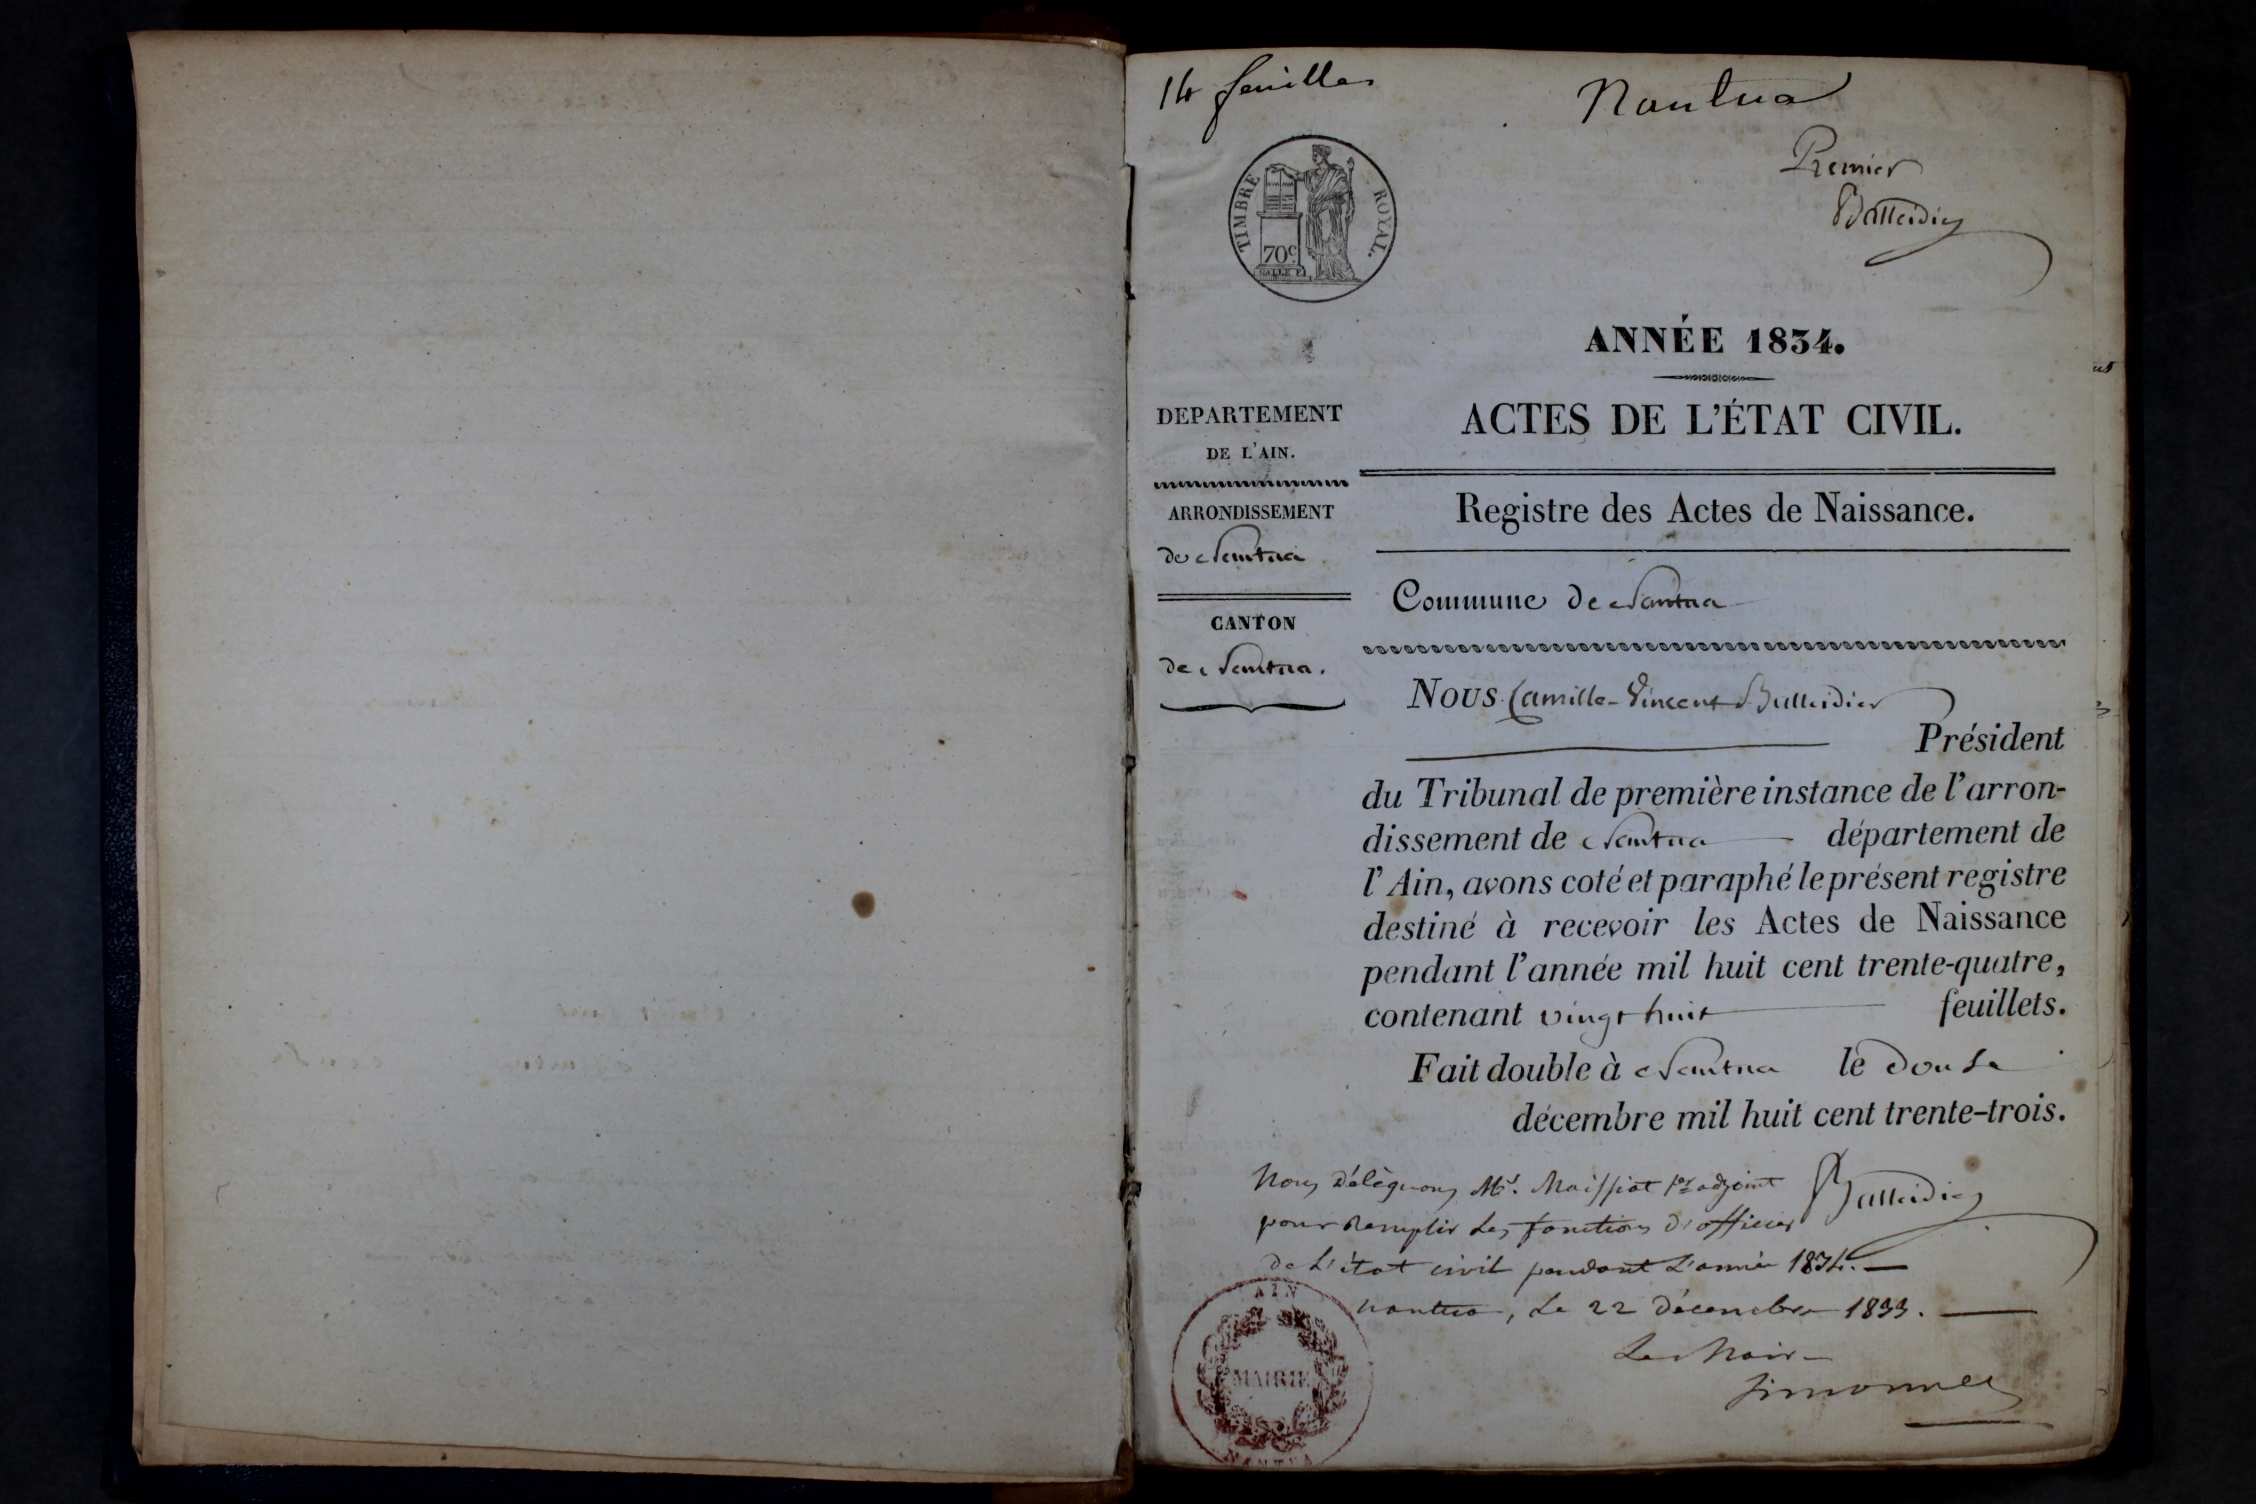 14 feuilles
Nantua
Premier
Balleidier
TIMBRE ROYAL.
70c
ANNÉE 1834.
DEPARTEMENT
DE L'AIN.
ARRONDISSEMENT
de Nantua
CANTON
de Nantua.
ACTES DE L'ÉTAT CIVIL.
Registre des Actes de Naissance.
Commune de Nantua
Nous Camille-Vincent Balleidier
Président
du Tribunal de première instance de l'arron-
dissement de Nantua département de
l'Ain, avons coté et paraphé le présent registre
destiné à recevoir les Actes de Naissance
pendant l'année mil huit cent trente-quatre,
contenant vingt huit feuillets.
Fait double à Nantua le douze
décembre mil huit cent trente-trois.
Balleidier
Nous déléguons Mr. Maissiat 1er adjoint
pour remplir les fonctions d'officier
de l'état civil pendant l'année 1834.
nantua, le 22 décembre 1833.
Le Maire
AIN
MAIRIE
NANTUA